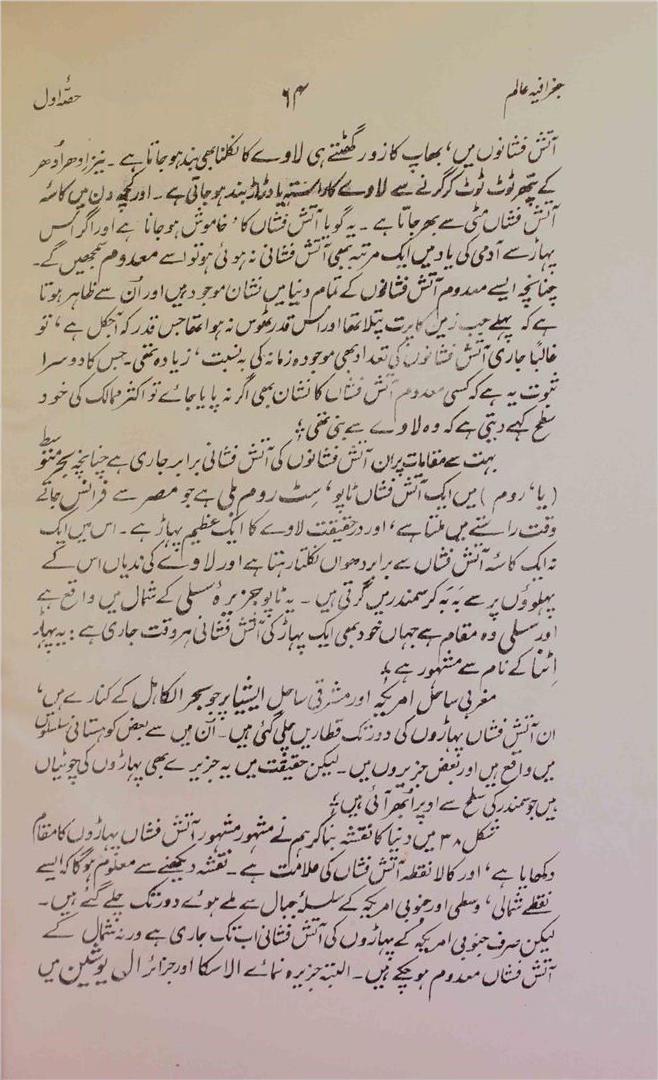 جغرافیہ عالم ۶۴ حصّۂ اول
آتش فشانوں میں، بھاپ کا زور گھٹتے ہی لاوے کا نکلنا بھی بند ہو جاتا ہے ۔ نیز اِدھر اُدھر
کے پتھر ٹوٹ ٹوٹ کر گرنے سے لاوے کا راستہ یا دڑاڑ بند ہو جاتی ہے ۔ اور کچھ دن میں کاسۂ
آتش فشاں مٹی سے بھر جاتا ہے ۔ یہ گویا آتش فشاں کا، خاموش ہو جانا ہے اور اگر اس
پہاڑ سے آدمی کی یاد میں ایک مرتبہ بھی آتش فشانی نہ ہوئی ہو تو اسے معدوم سمجھیں گے۔
چنانچہ ایسے معدوم آتش فشانوں کے تمام دنیا میں نشان موجود ہیں اور اُن سے ظاہر ہوتا
ہے کہ پہلے جب زمین کا پرت پتلا تھا اور اس قدر ٹھوس نہ ہوا تھا جس قدر کہ آجکل ہے، تو
غالباً جاری آتش فشانوں کی تعداد بھی موجودہ زمانہ کی بہ نسبت، زیادہ تھی۔ جس کا دوسرا
ثبوت یہ ہے کہ کسی معدوم آتش فشاں کا نشان بھی اگر نہ پایا جائے تو اکثر ممالک کی خود
سطح کہے دیتی ہے کہ وہ لاوے سے بنی تھی ؛
بہت سے مقامات پر ان آتش فشانوں کی آتش فشانی برابر جاری ہے چنانچہ بحر متوسط
(یا، روم) میں ایک آتش فشاں ٹاپو، سٹ روم بلی ہے جو مصر سے فرانس جاتے
وقت راستے میں ملتا ہے، اور درحقیقت لاوے کا ایک عظیم پہاڑ ہے ۔ اس میں ایک
نہ ایک کاسۂ آتش فشاں سے برابر دھواں نکلتا رہتا ہے اور لاوے کی ندیاں اس کے
پہلوؤں پر سے بَہ بَہ کر سمندر میں گرتی ہیں ۔ یہ ٹاپو جزیرۂ سسلی کے شمال میں واقع ہے
اور سسلی وہ مقام ہے جہاں خود بھی ایک پہاڑ کی آتش فشانی ہر وقت جاری ہے : یہ پہاڑ
اِٹنا کے نام سے مشہور ہے ؛
مغربی ساحل امریکہ اور مشرقی ساحل ایشیا پر جو بحر الکاہل کے کنارے ہیں،
ان آتش فشاں پہاڑوں کی دور تک قطاریں چلی گئی ہیں ۔ اُن میں سے بعض کوہستانی سلسلوں
میں واقع ہیں اور بعض جزیروں میں ۔ لیکن حقیقت میں یہ جزیرے بھی پہاڑوں کی چوٹیاں
ہیں جو سمندر کی سطح سے اوپر اُبھر آئی ہیں ؛
شکل ۳۸ میں دنیا کا نقشہ بنا کر ہم نے مشہور مشہور آتش فشاں پہاڑوں کا مقام
دکھایا ہے، اور کالا نقطہ آتش فشاں کی علامت ہے ۔ نقشہ دیکھنے سے معلوم ہوگا کہ ایسے
نقطے شمالی، وسطی اور جنوبی امریکہ کے سلسلۂ جبال سے ملے ہوئے دور تک چلے گئے ہیں ۔
لیکن صرف جنوبی امریکہ کے پہاڑوں کی آتش فشانی اب تک جاری ہے ورنہ شمال کے
آتش فشاں معدوم ہو چکے ہیں ۔ البتہ جزیرہ نمائے الاسکا اور جزائر الی یوشین میں